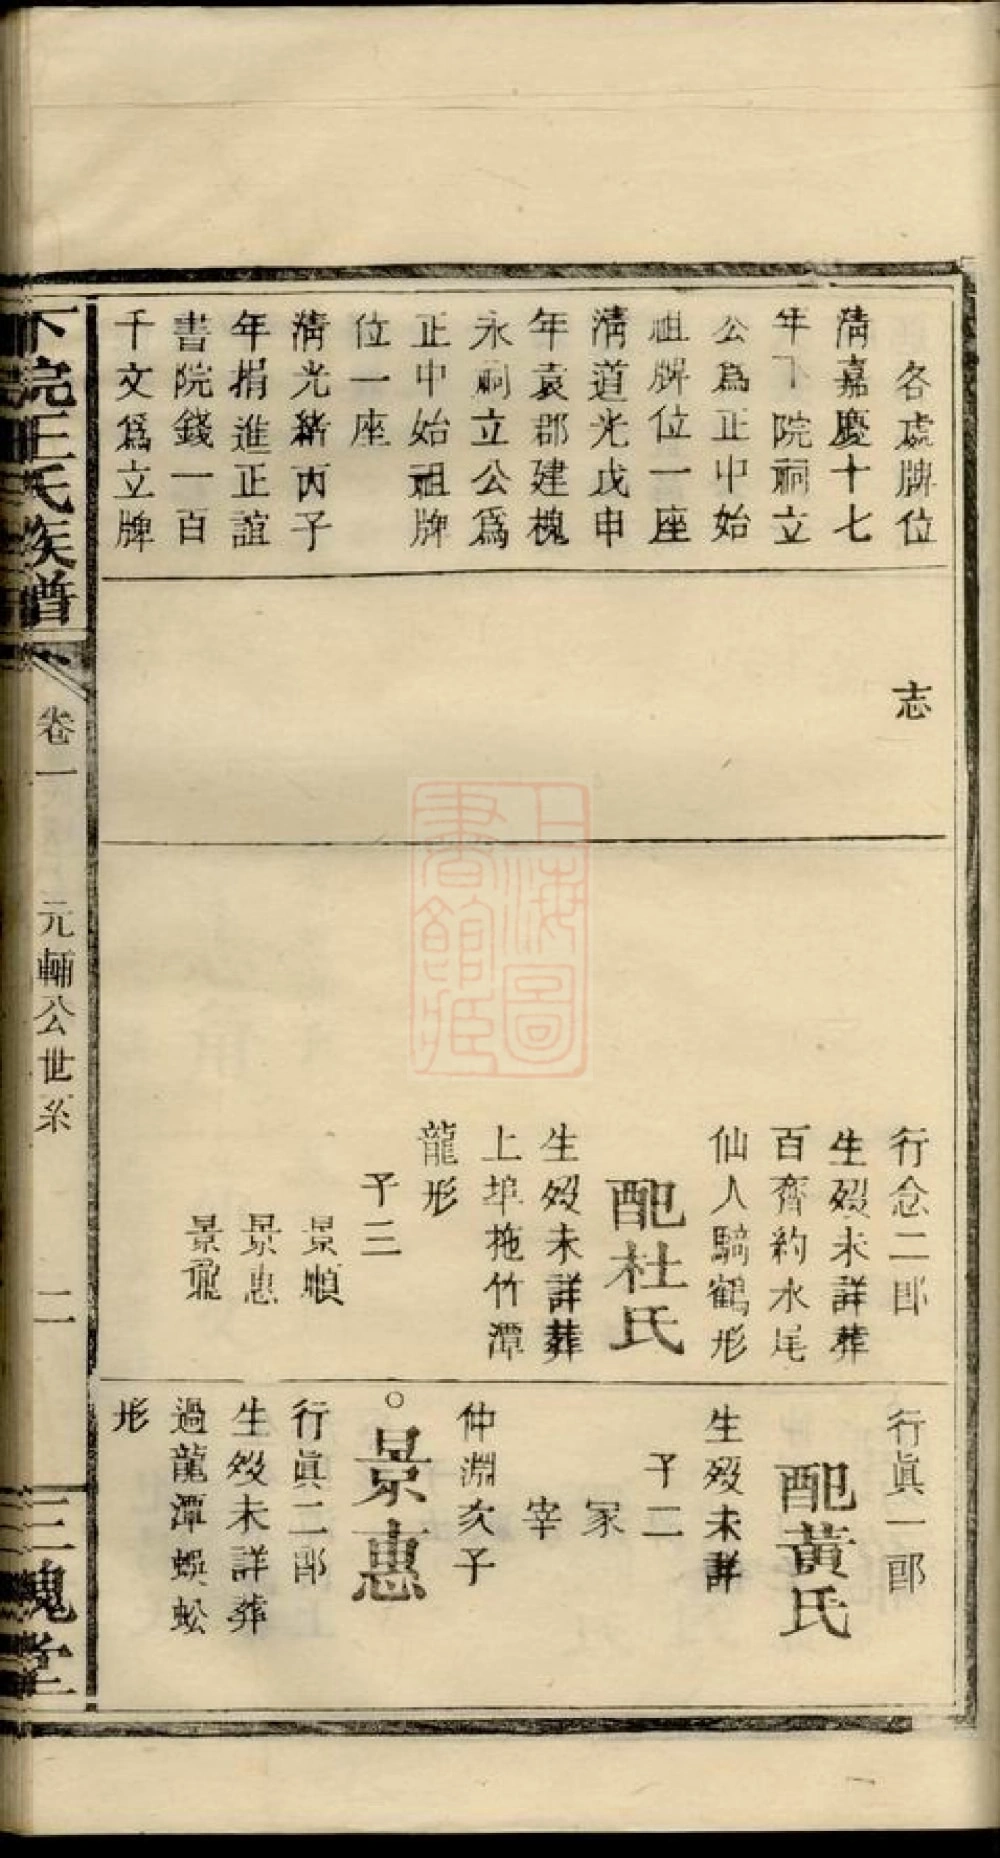 各處牌位
清嘉慶十七
年下院祠立
公爲正中始
祖牌位一座
清道光戊申
年袁郡建槐
永祠立公爲
正中始祖牌
位一座
清光緒丙子
年捐進正誼
書院錢一百
千文爲立牌
志
行念二郎
生歿未詳葬
百齊約水尾
仙人騎鶴形
配杜氏
生歿未詳葬
上埠拖竹潭
龍形
子三
景順
景惠
景
行眞一郎
配黃氏
生歿未詳
子二
冢
宰
仲淵次子
○景惠
行眞二郎
生歿未詳葬
過龍潭蜈蚣
形
下院王氏族譜
卷一
元輔公世系
二
三槐堂
上海圖
書館藏